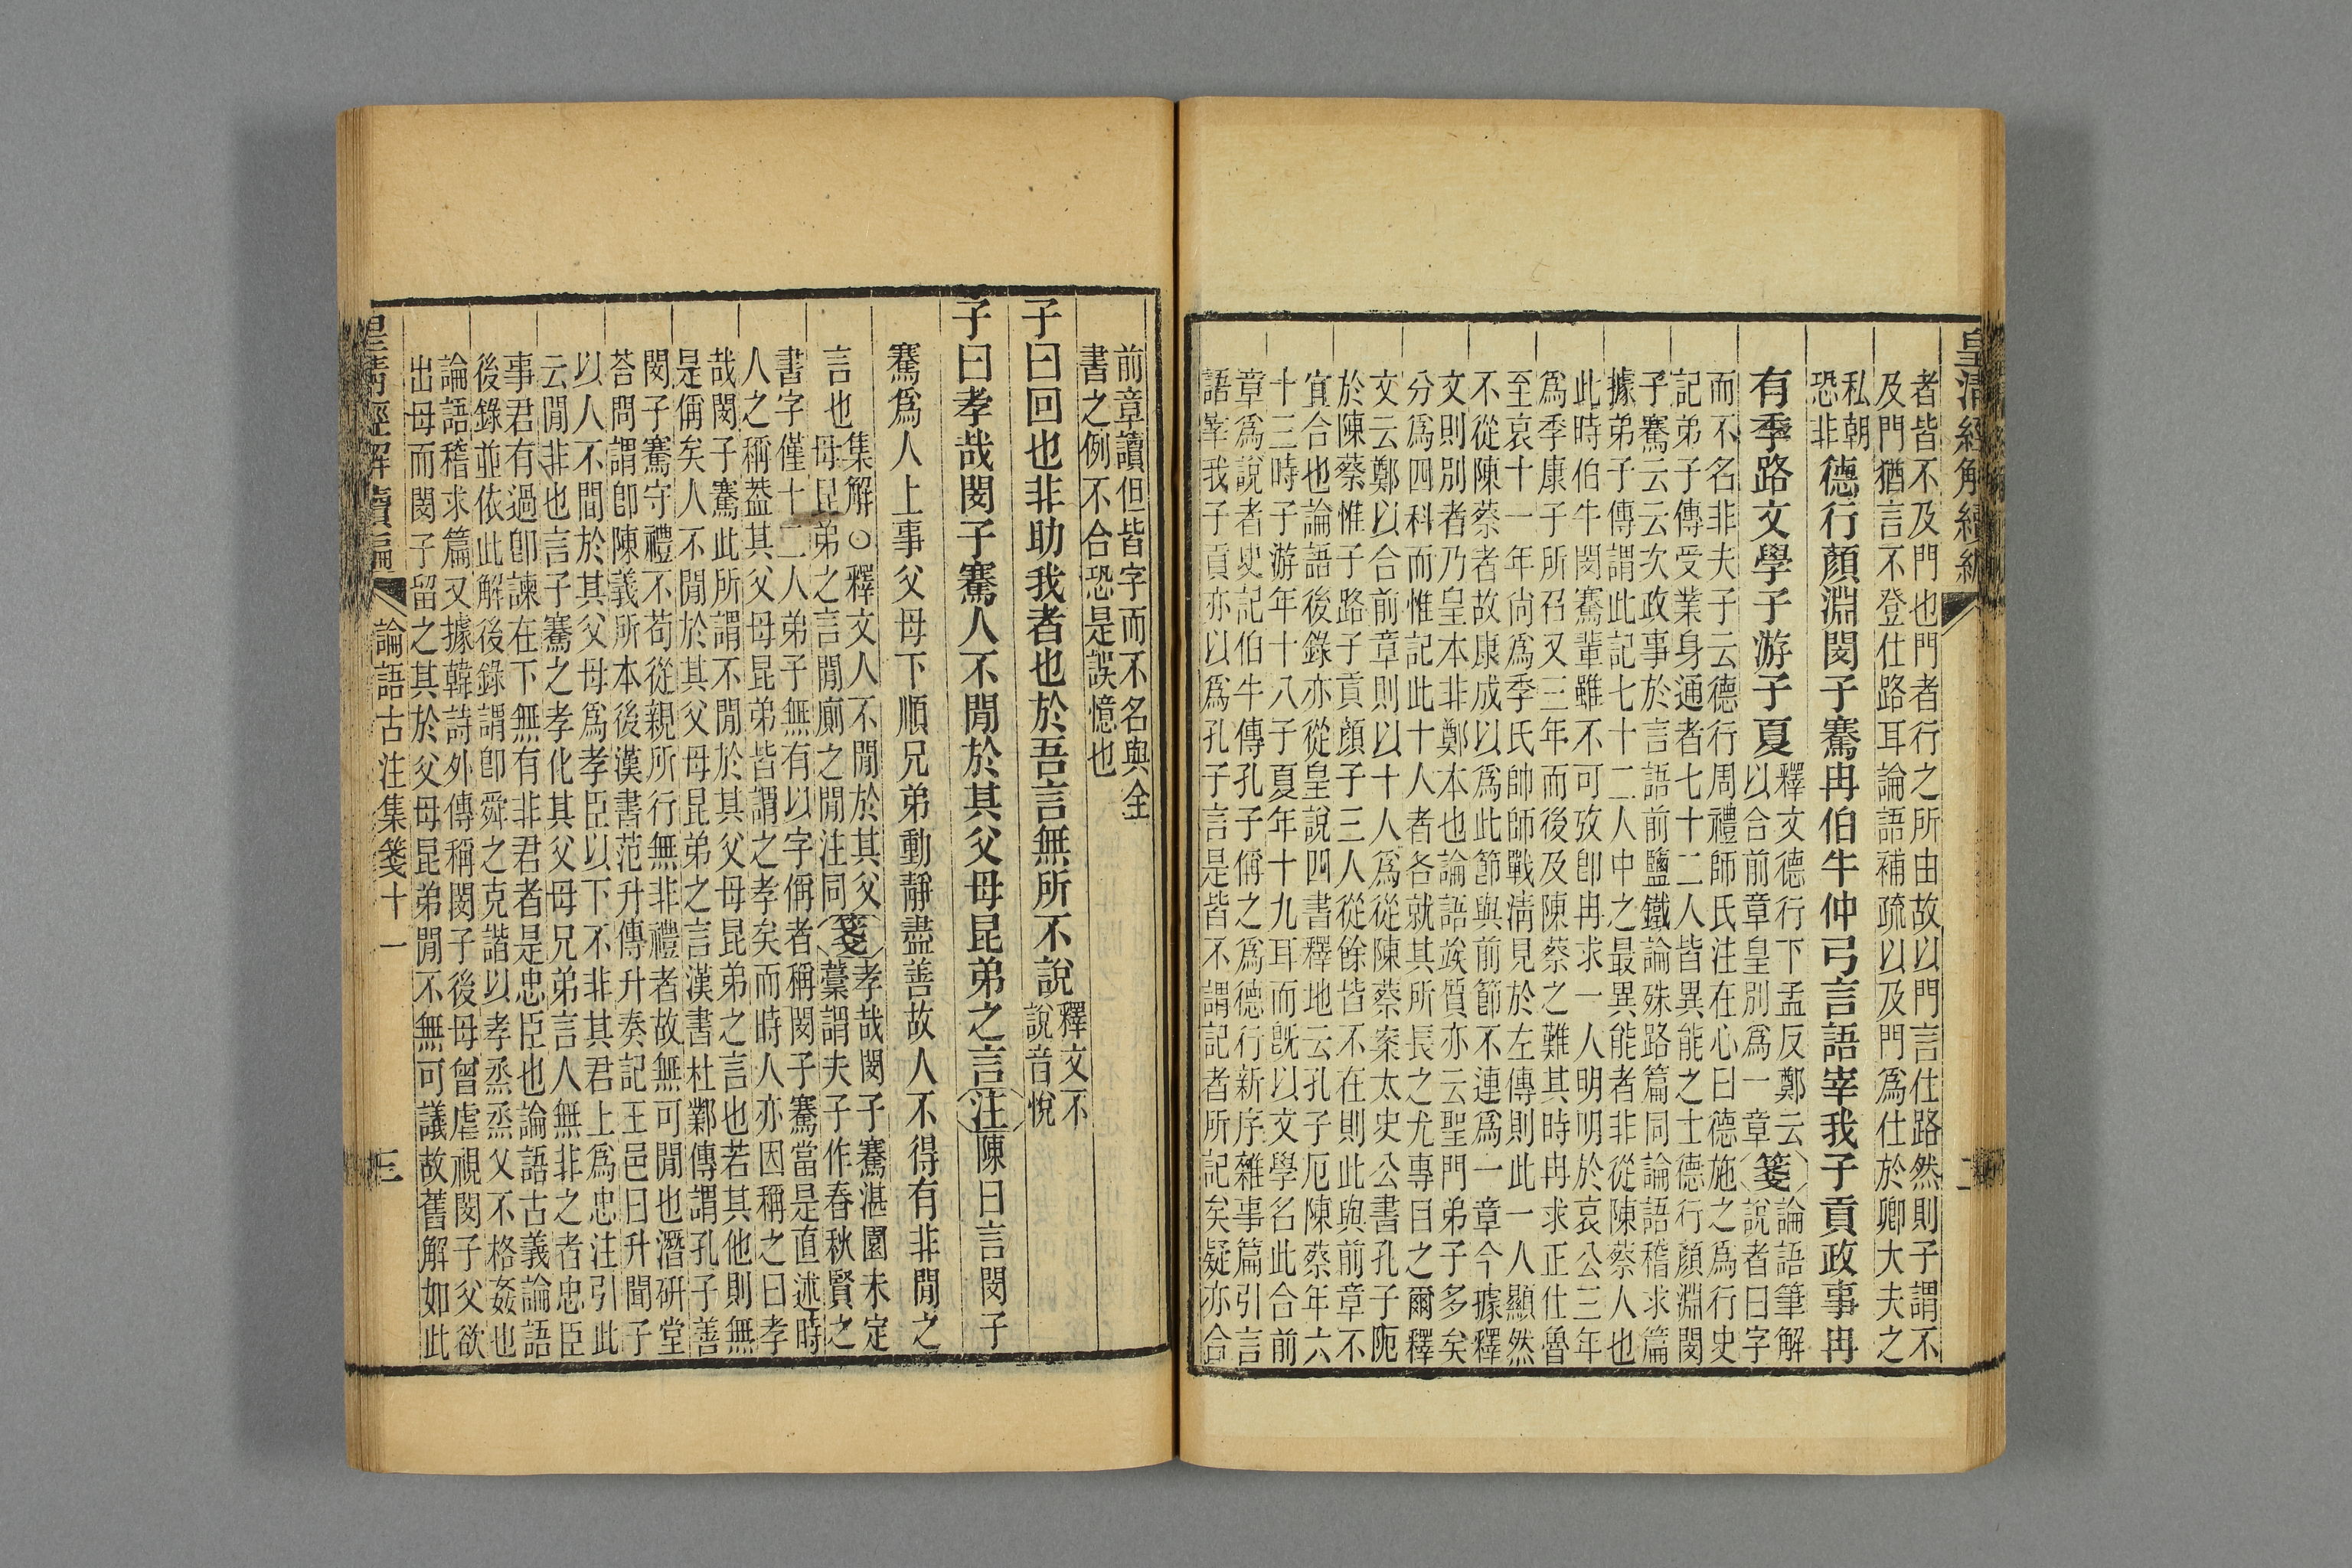 皇清經解續編
者皆不及門也門者行之所由故以門言仕路然則子謂不
及門猶言不登仕路耳論語補疏以及門爲仕於卿大夫之
私朝
恐非
德行顏淵閔子騫冉伯牛仲弓言語宰我子貢政事冉
有季路文學子游子夏
釋文德行下孟反鄭云
以合前章皇別爲一章
箋
論語筆解
說者曰字
而不名非夫子云德行周禮師氏注在心曰德施之爲行史
記弟子傳受業身通者七十二人皆異能之士德行顏淵閔
子騫云云次政事於言語前鹽鐵論殊路篇同論語稽求篇
據弟子傳謂此記七十二人中之最異能者非從陳蔡人也
此時伯牛閔騫輩雖不可攷卽冉求一人明明於哀公三年
爲季康子所召又三年而後及陳蔡之難其時冉求正仕魯
至哀十一年尙爲季氏帥師戰淸見於左傳則此一人顯然
不從陳蔡者故康成以爲此節與前節不連爲一章今據釋
文則別者乃皇本非鄭本也論語竢質亦云聖門弟子多矣
分爲四科而惟記此十人者各就其所長之尤專目之爾釋
文云鄭以合前章則以十人爲從陳蔡案太史公書孔子阨
於陳蔡惟子路子貢顏子三人從餘皆不在則此與前章不
宜合也論語後錄亦從皇說四書釋地云孔子厄陳蔡年六
十三時子游年十八子夏年十九耳而旣以文學名此合前
章爲說者史記伯牛傳孔子偁之爲德行新序雜事篇引言
語宰我子貢亦以爲孔子言是皆不謂記者所記矣疑亦合
前章讀但皆字而不名與全
書之例不合恐是誤憶也
子曰回也非助我者也於吾言無所不說
釋文不
說音悅
子曰孝哉閔子騫人不閒於其父母昆弟之言
注
陳曰言閔子
騫爲人上事父母下順兄弟動靜盡善故人不得有非閒之
言也
集解○釋文人不閒於其父
母昆弟之言閒廁之閒注同
箋
孝哉閔子騫湛園未定
藁謂夫子作春秋賢之
書字僅十二人弟子無有以字偁者稱閔子騫當是直述時
人之稱葢其父母昆弟皆謂之孝矣而時人亦因稱之曰孝
哉閔子騫此所謂不閒於其父母昆弟之言也若其他則無
是偁矣人不閒於其父母昆弟之言漢書杜鄴傳謂孔子善
閔子騫守禮不苟從親所行無非禮者故無可閒也潛硏堂
荅問謂卽陳義所本後漢書范升傳升奏記王邑曰升聞子
以人不間於其父母爲孝臣以下不非其君上爲忠注引此
云閒非也言子騫之孝化其父母兄弟言人無非之者忠臣
事君有過卽諫在下無有非君者是忠臣也論語古義論語
後錄並依此解後錄謂卽舜之克諧以孝烝烝父不格姦也
論語稽求篇又據韓詩外傳稱閔子後母曾虐視閔子父欲
出母而閔子留之其於父母昆弟閒不無可議故舊解如此
皇清經解續編
論語古注集箋十一
三